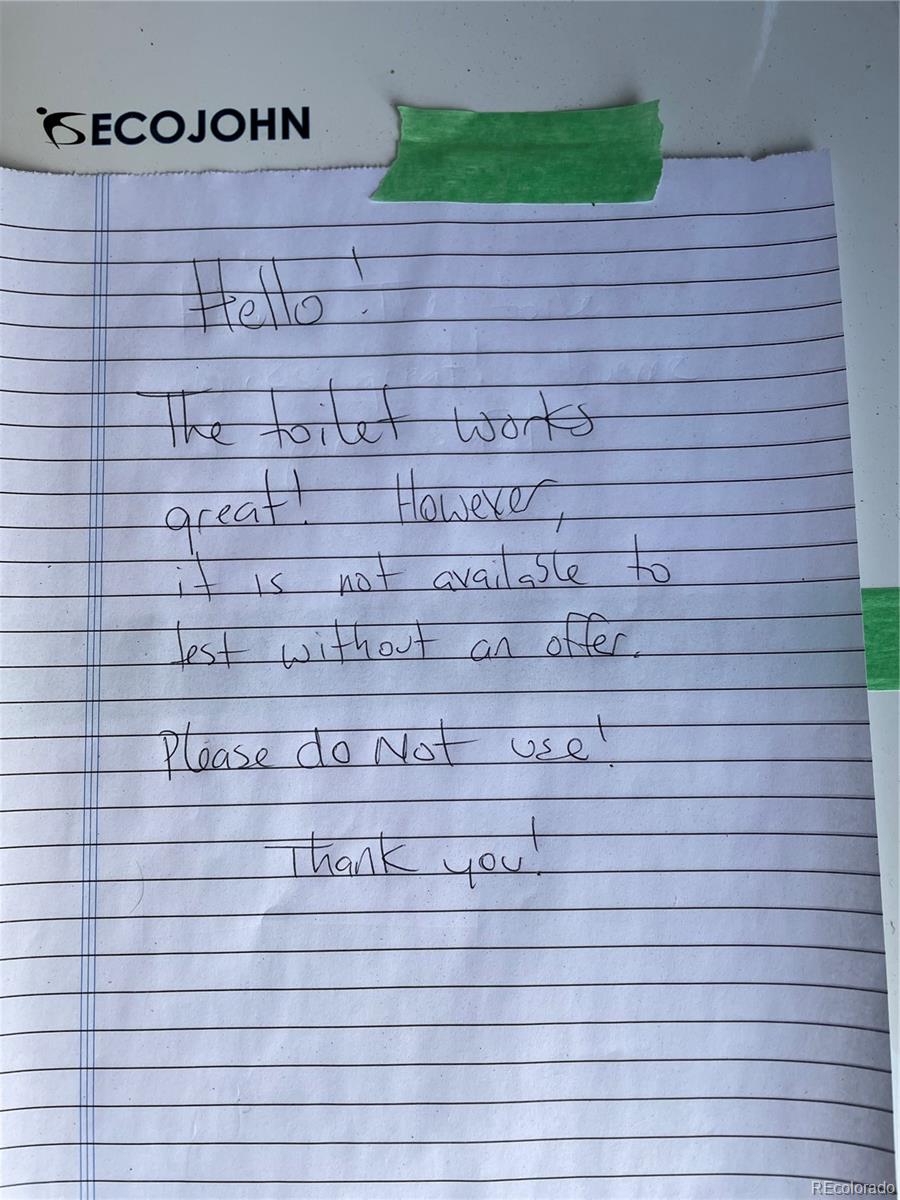 ECOJOHN
Hello!
The toilet works
great! However,
it is not available to
test without an offer.
Please do Not use!
Thank you!
REcolorado